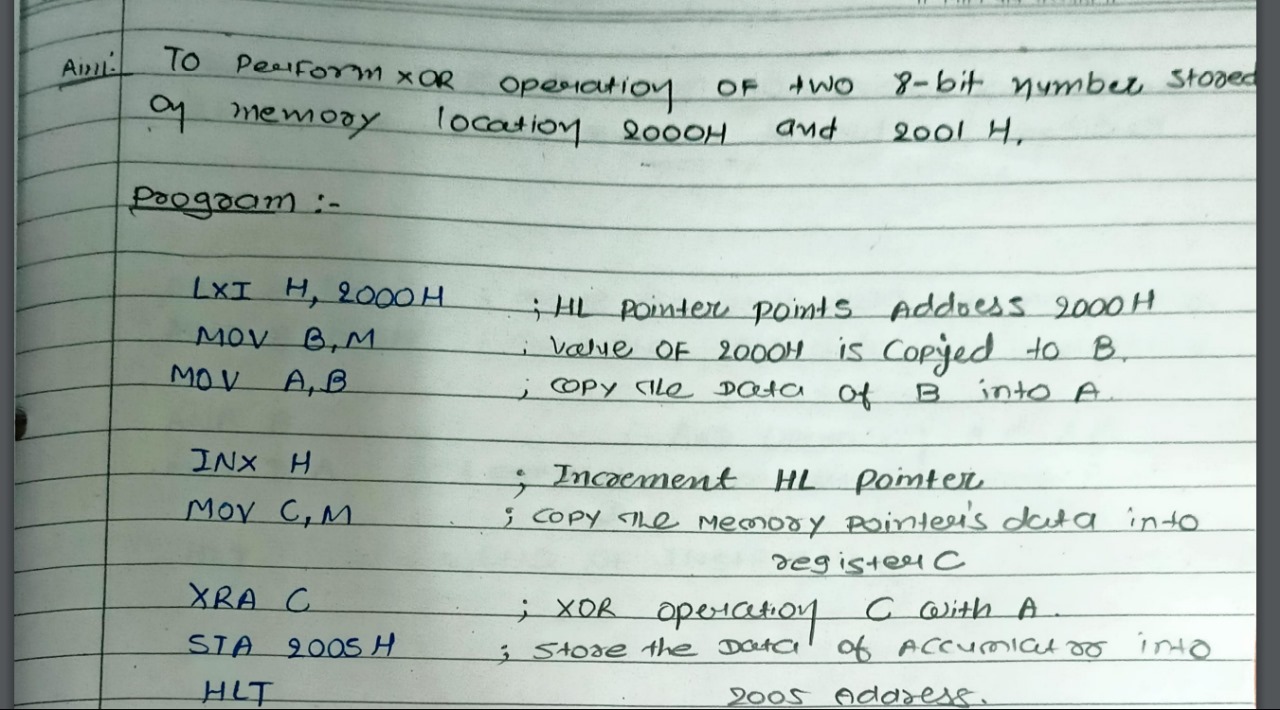 Aim:- To Perform XOR operation OF two 8-bit number stored
on memory location 2000H and 2001 H.
Program :-
LXI H, 2000H ; HL pointer points Address 2000H
MOV B,M ; value OF 2000H is Copied to B.
MOV A,B ; COPY the Data of B into A.
INX H ; Increment HL pointer
MOV C,M ; COPY the Memory pointer's data into
register C
XRA C ; XOR operation C with A.
STA 2005H ; Store the Data of
HLT 2005 Address.